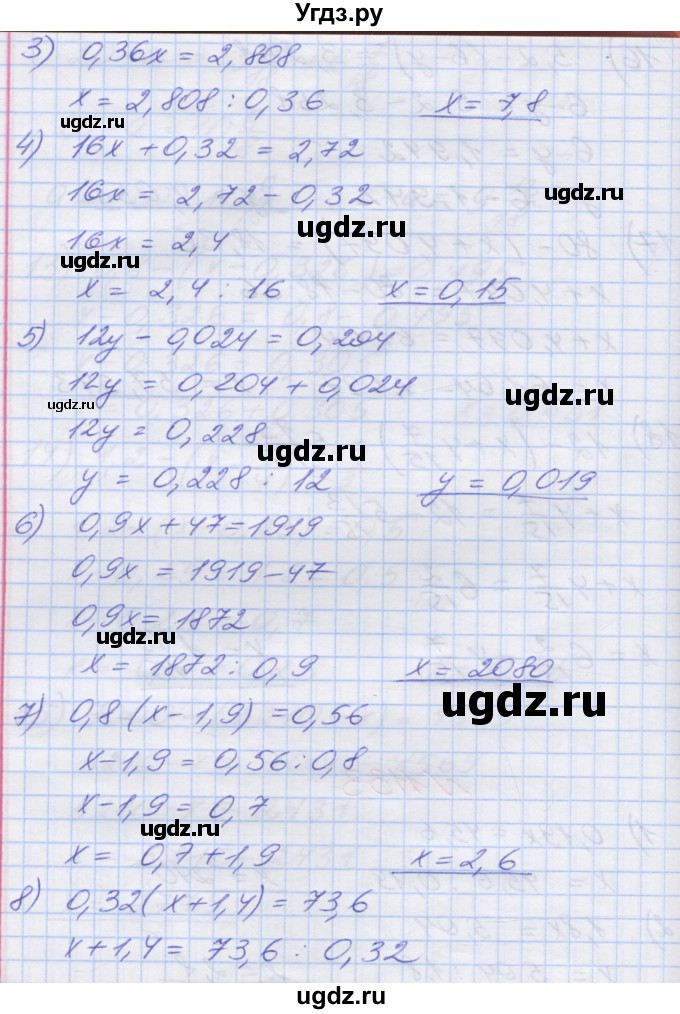 Угдз.ру
3) 0,36x = 2,808
x = 2,808 : 0,36 x = 7,8
ugdz.ru
4) 16x + 0,32 = 2,72
16x = 2,72 - 0,32
ugdz.ru
ugdz.ru
16x = 2,4
ugdz.ru
x = 2,4 : 16 x = 0,15
5) 12y - 0,024 = 0,204
12y = 0,204 + 0,024
ugdz.ru
ugdz.ru
12y = 0,228
ugdz.ru
y = 0,228 : 12 y = 0,019
6) 0,9x + 47 = 1919
0,9x = 1919 - 47
0,9x = 1872
ugdz.ru
x = 1872 : 0,9 x = 2080
ugdz.ru
7) 0,8 (x - 1,9) = 0,56
x - 1,9 = 0,56 : 0,8
x - 1,9 = 0,7
ugdz.ru
x = 0,7 + 1,9 x = 2,6
8) 0,32 (x + 1,4) = 73,6
x + 1,4 = 73,6 : 0,32
ugdz.ru